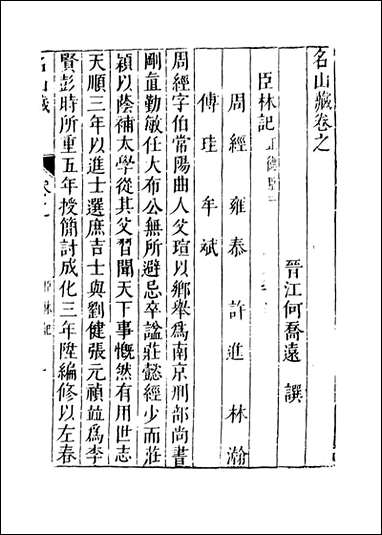 名山藏卷之
晉江何喬遠 譔
臣林記
周經 雍泰 許進 林瀚
傅珪 牟斌
周經字伯常陽曲人父瑄以鄉舉爲南京刑部尚書
剛直勤敏任大布公無所避忌卒謚莊懿經少而莊
穎以蔭補太學從其父習聞天下事慨然有用世志
天順三年以進士選庶吉士與劉健張元禎並爲李
賢彭時所重五年授簡討成化三年陞編修以左春
名山藏
臣林記 一